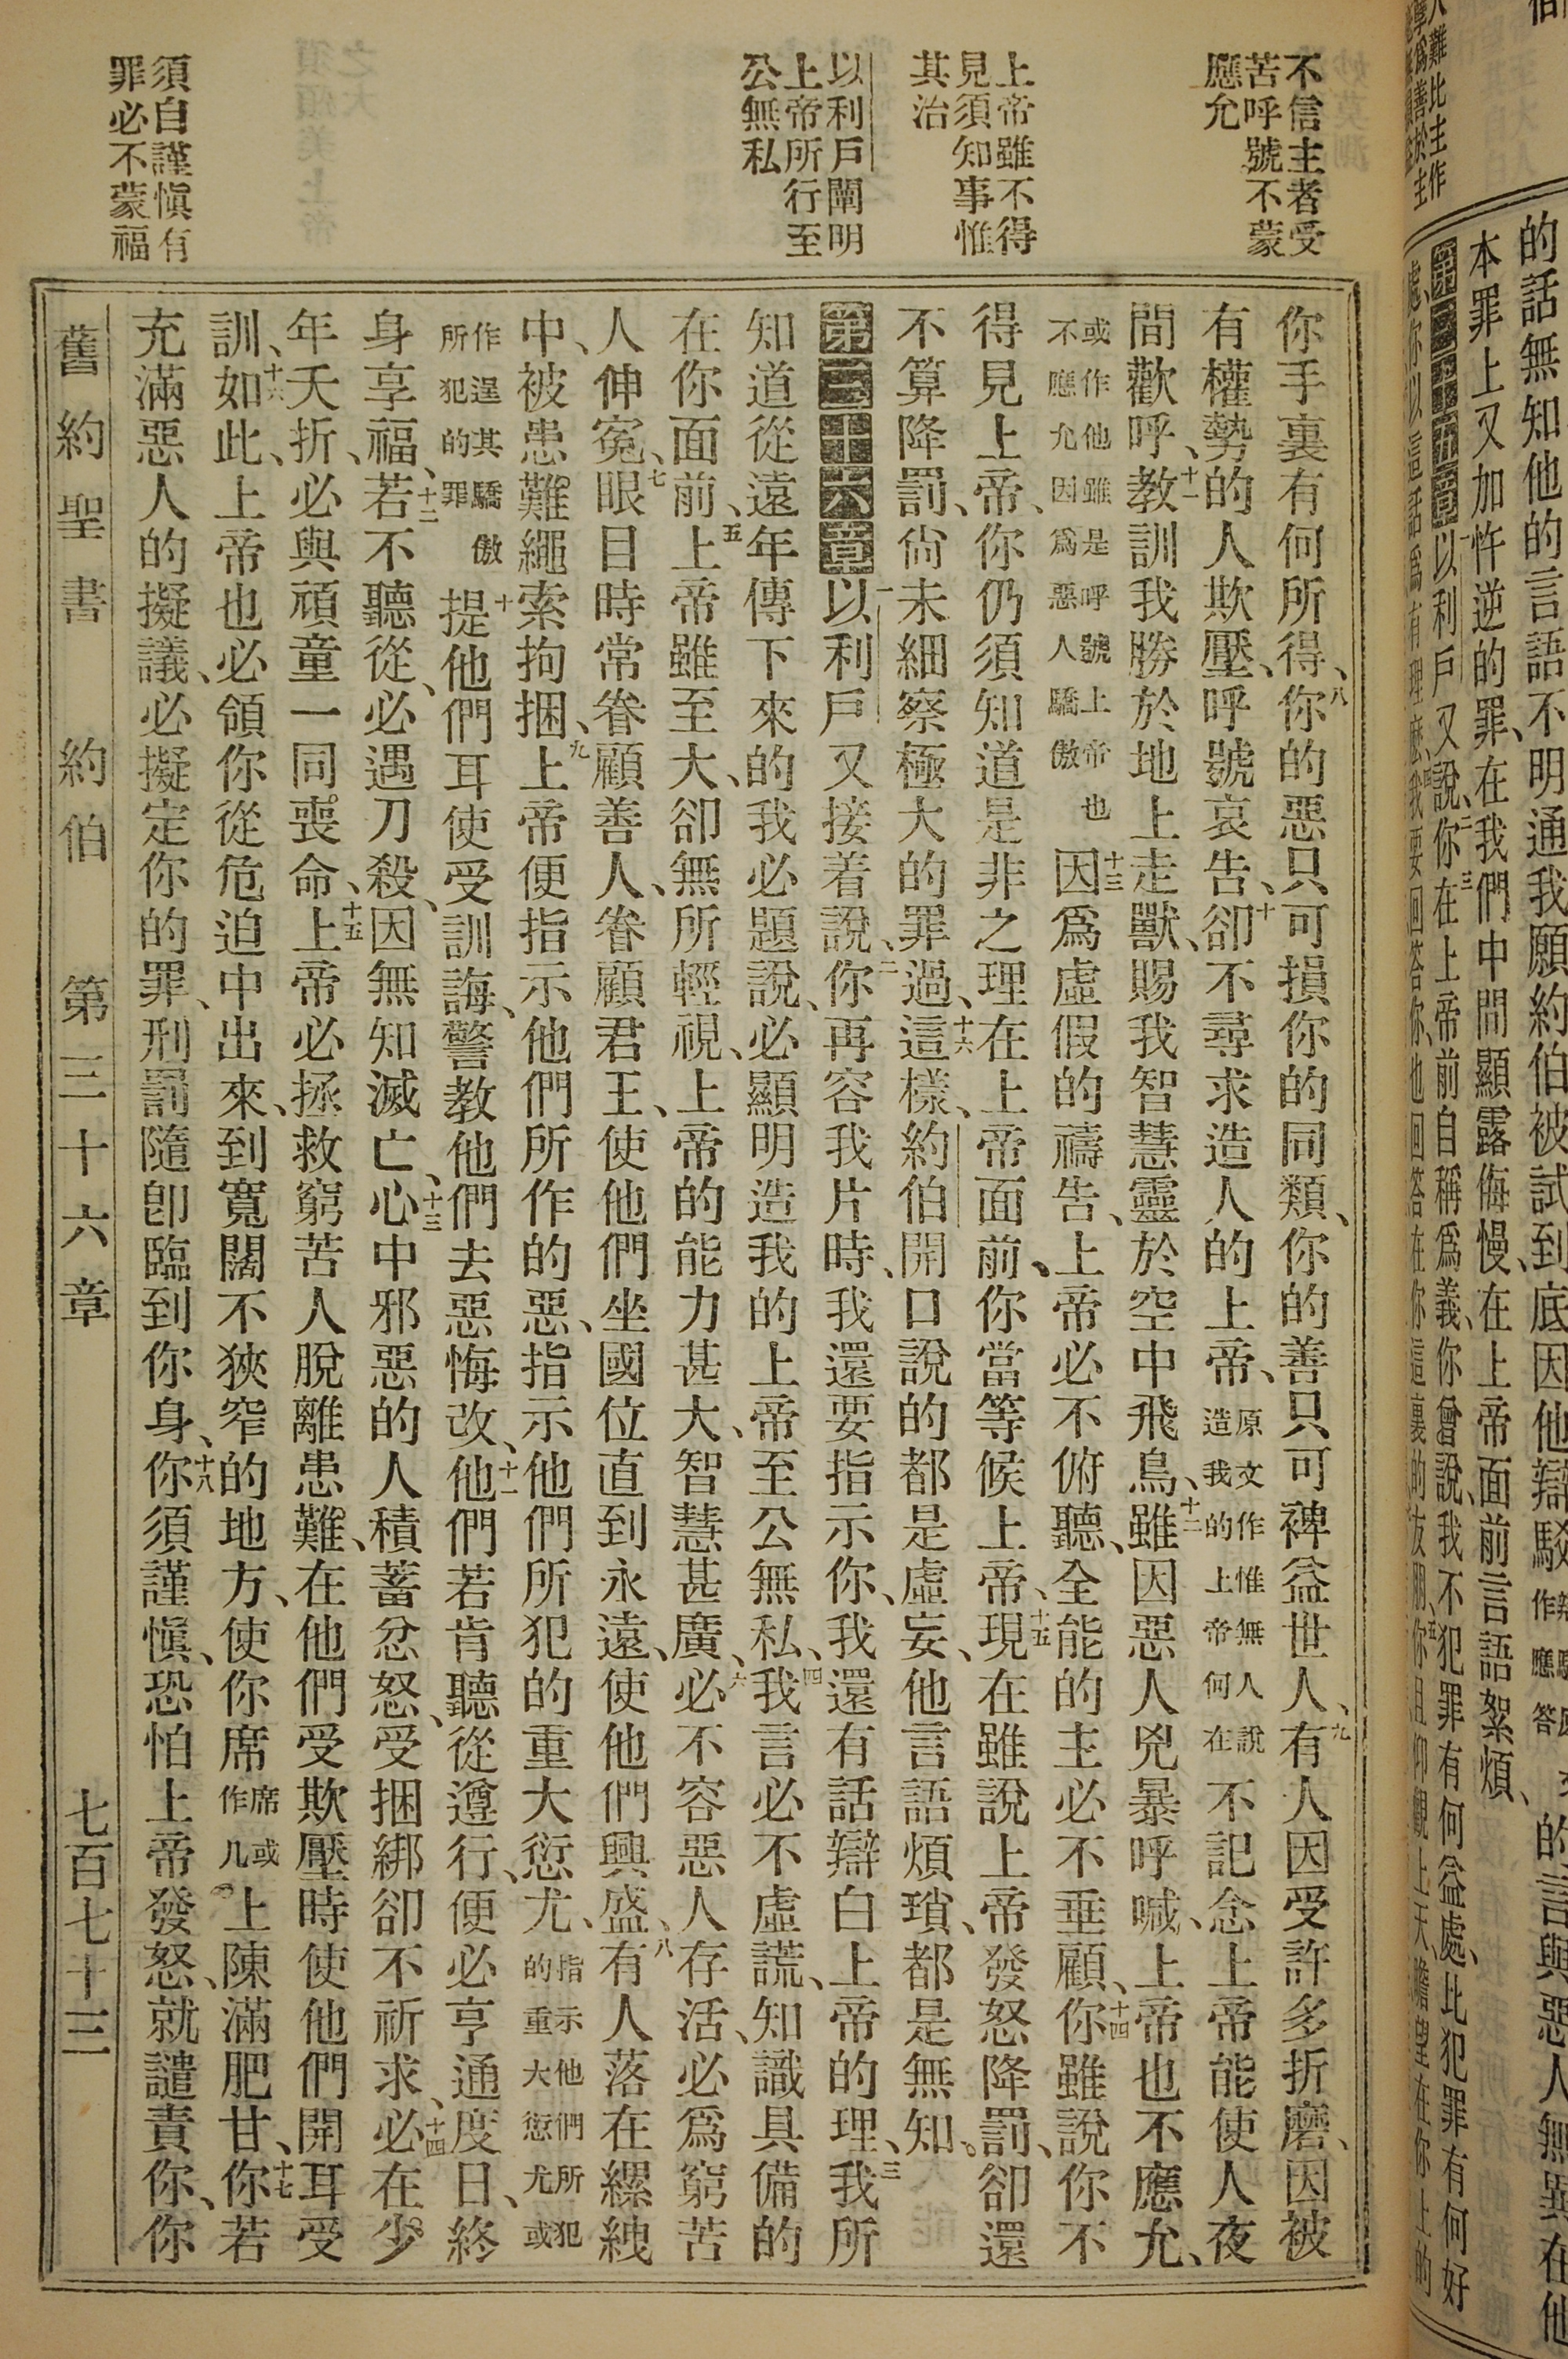 的話無知他的言語不明通我願約伯被試到底因他辯駁
本罪上又加忤逆的罪、在我們中間顯露侮慢、在上帝面前言語絮煩、
以利戶又說、二你三在上帝前自稱爲義、你曾說、我不犯罪有何益處、比犯罪有何好
不信主者受
苦呼號不蒙
應允
上帝雖不得
見須知事惟
其治
以利戶闡明
上帝所行至
公無私
須自謹慎有
罪必不蒙福
你手裏有何所得、八你的惡只可損你的同類、你的善只可裨益世人、九有人因受許多折磨、因被
有權勢的人欺壓、呼號哀告、十卻不尋求造人的上帝、原文作惟無人說造我的上帝何在不記念上帝能使人夜
間歡呼、十一教訓我勝於地上走獸、賜我智慧靈於空中飛鳥、十二雖因惡人兇暴呼喊、上帝也不應允、
或作他雖是呼號上帝也不應允因爲惡人驕傲十三因爲虛假的禱告、上帝必不俯聽、全能的主必不垂顧、十四你雖說你不
得見上帝、你仍須知道是非之理在上帝面前、你當等候上帝、十五現在雖說上帝發怒降罰、卻還
不算降罰、尙未細察極大的罪過、十六這樣、約伯開口說的都是虛妄、他言語煩瑣、都是無知。
第三十六章一以利戶又接着說、二你再容我片時、我還要指示你、我還有話辯白上帝的理、三我所
知道從遠年傳下來的我必題說、必顯明造我的上帝至公無私、四我言必不虛謊、知識具備的
在你面前、五上帝雖至大、卻無所輕視、上帝的能力甚大、智慧甚廣、六必不容惡人存活、必爲窮苦
人伸冤、七眼目時常眷顧善人、眷顧君王、使他們坐國位直到永遠、使他們興盛、八有人落在縲絏
中、被患難繩索拘捆、九上帝便指示他們所作的惡、指示他們所犯的重大愆尤、指示他們所犯的重大愆尤或
作逞其驕傲所犯的罪十提他們耳使受訓誨、警教他們去惡悔改、十一他們若肯聽從遵行、便必亨通度日、終
身享福、十二若不聽從、必遇刀殺、因無知滅亡、十三心中邪惡的人積蓄忿怒、受捆綁卻不祈求、十四必在少
年夭折、必與頑童一同喪命、十五上帝必拯救窮苦人脫離患難、在他們受欺壓時使他們開耳受
訓、十六如此、上帝也必領你從危迫中出來、到寬闊不狹窄的地方、使你席席或作几上陳滿肥甘、十七你若
充滿惡人的擬議、必擬定你的罪、刑罰隨卽臨到你身、十八你須謹慎、恐怕上帝發怒、就譴責你、你
舊約聖書 約伯 第三十六章 七百七十三